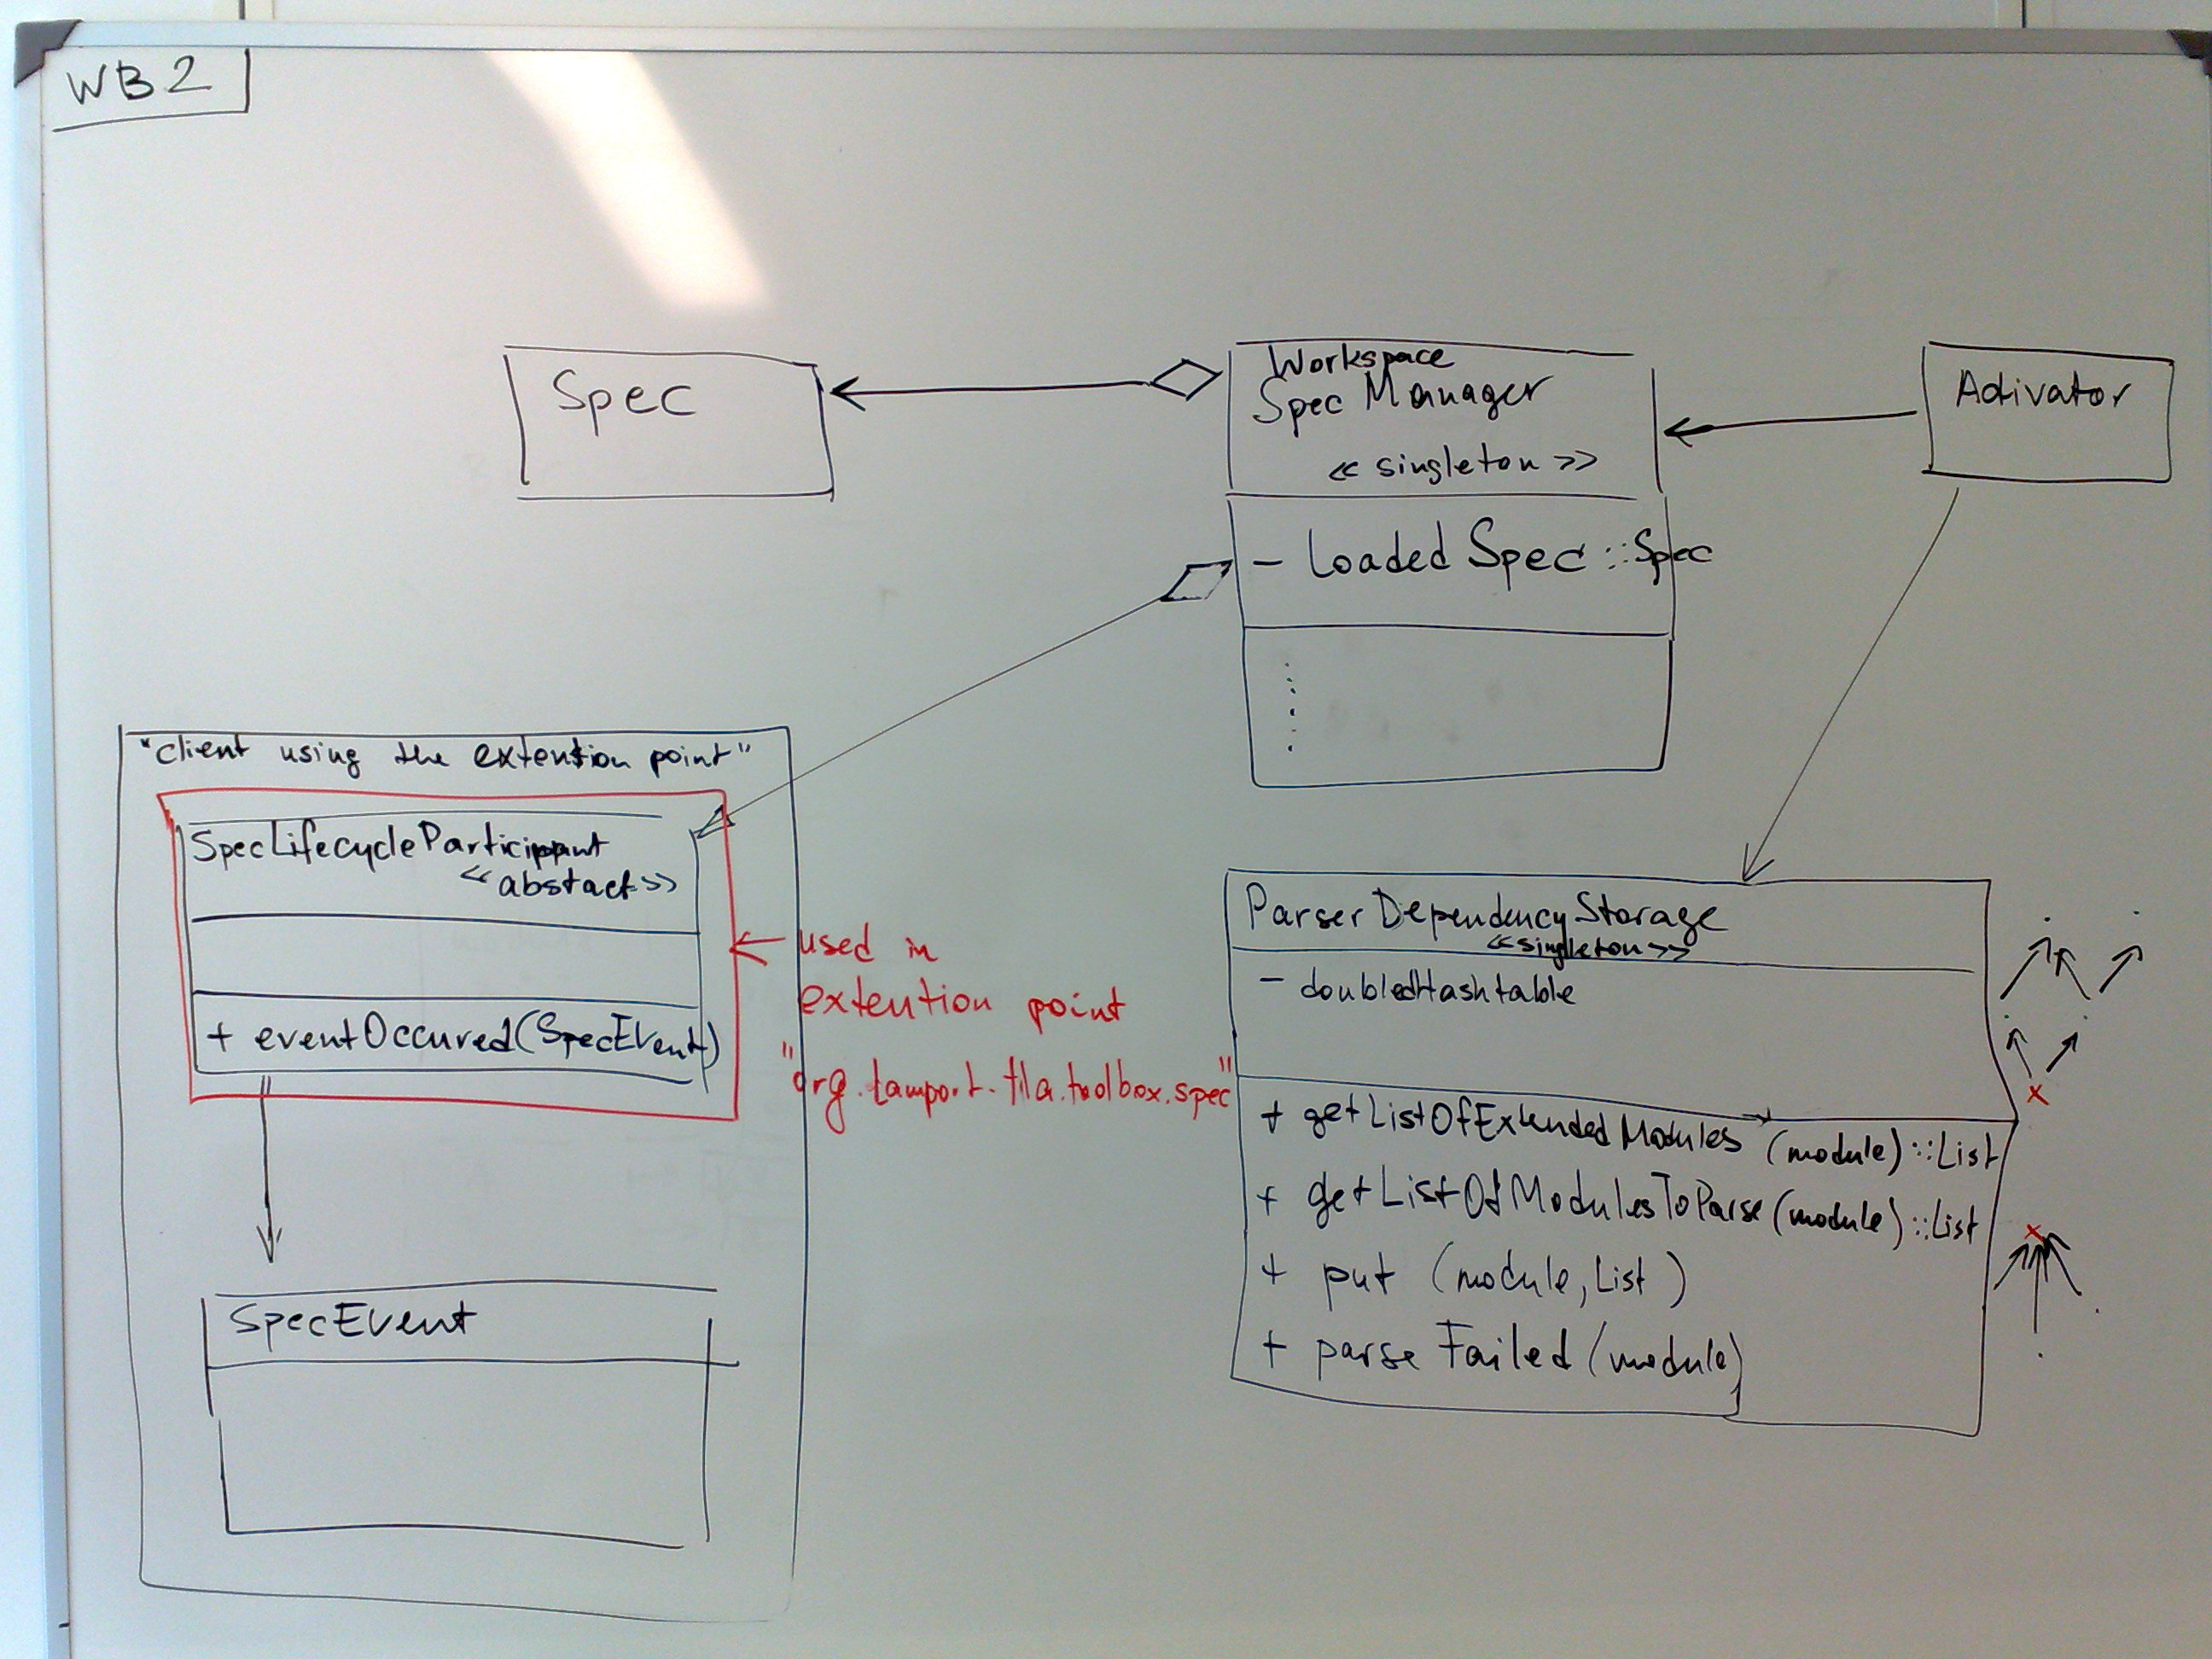 WB2
Spec
Workspace
Spec Manager
<< singleton >>
- Loaded Spec :: Spec
Activator
"client using the extention point"
SpecLifecycleParticipant
<< abstact >>
+ eventOccured(SpecEvent)
used in
extention point
"org.lamport.tla.toolbox.spec"
SpecEvent
ParserDependencyStorage
<<singleton>>
- doubledHashtable
+ getListOfExtendedModules (module)::List
+ getListOfModulesToParse (module)::List
+ put (module, List)
+ parseFailed (module)